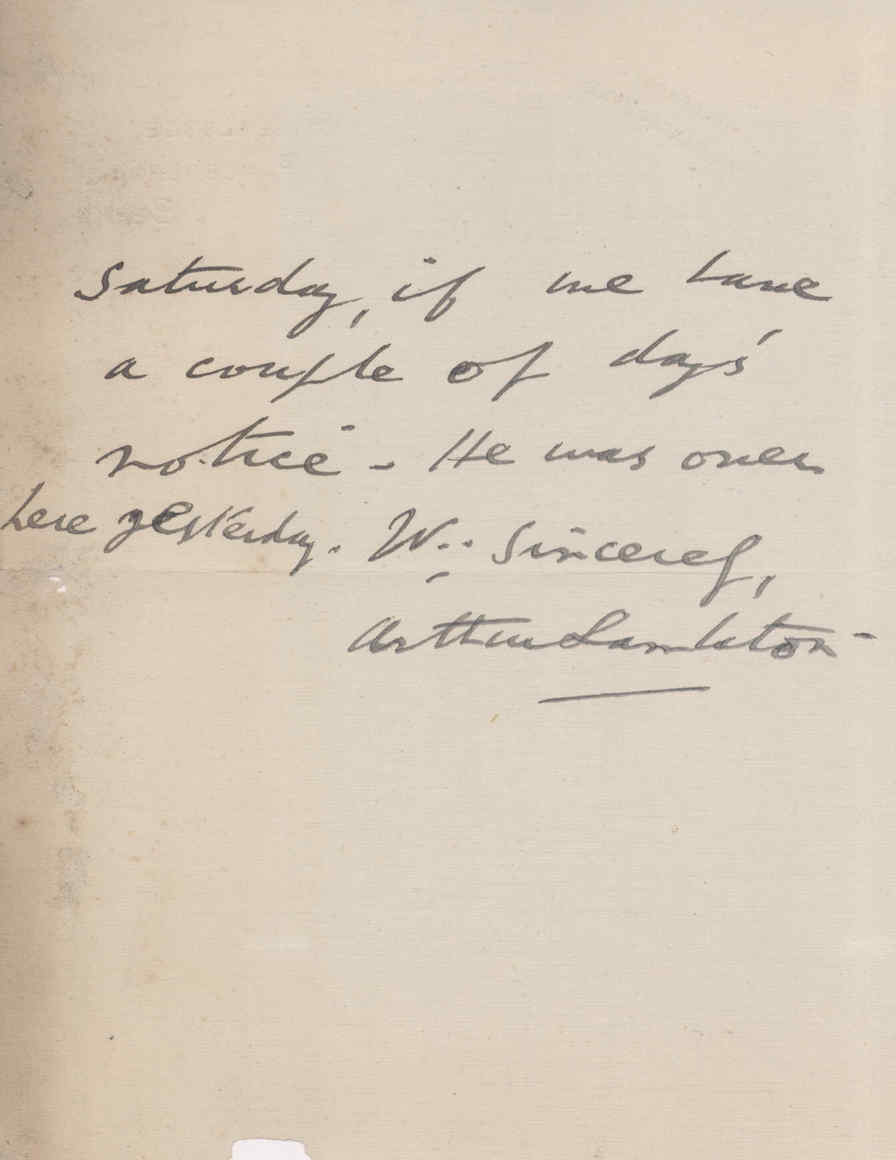 Saturday, if we have
a couple of days'
notice - He was over
here yesterday. Sincerely,
Arthur Lambton -